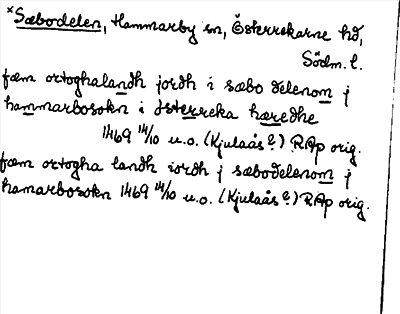 *Sæbodelen, Hammarby sn, Österrekarne hd,
Södm. l.
fæm ortoghalandh jordh i sæbo delenom j
hammarbosokn i østerreka hæredhe
1469 14/10 u.o. (Kjulaås?) RAp orig.
fæm ortogha landh iordh j sæbodelenom j
hamarbosokn 1469 14/10 u.o. (Kjulaås?) RAp orig.